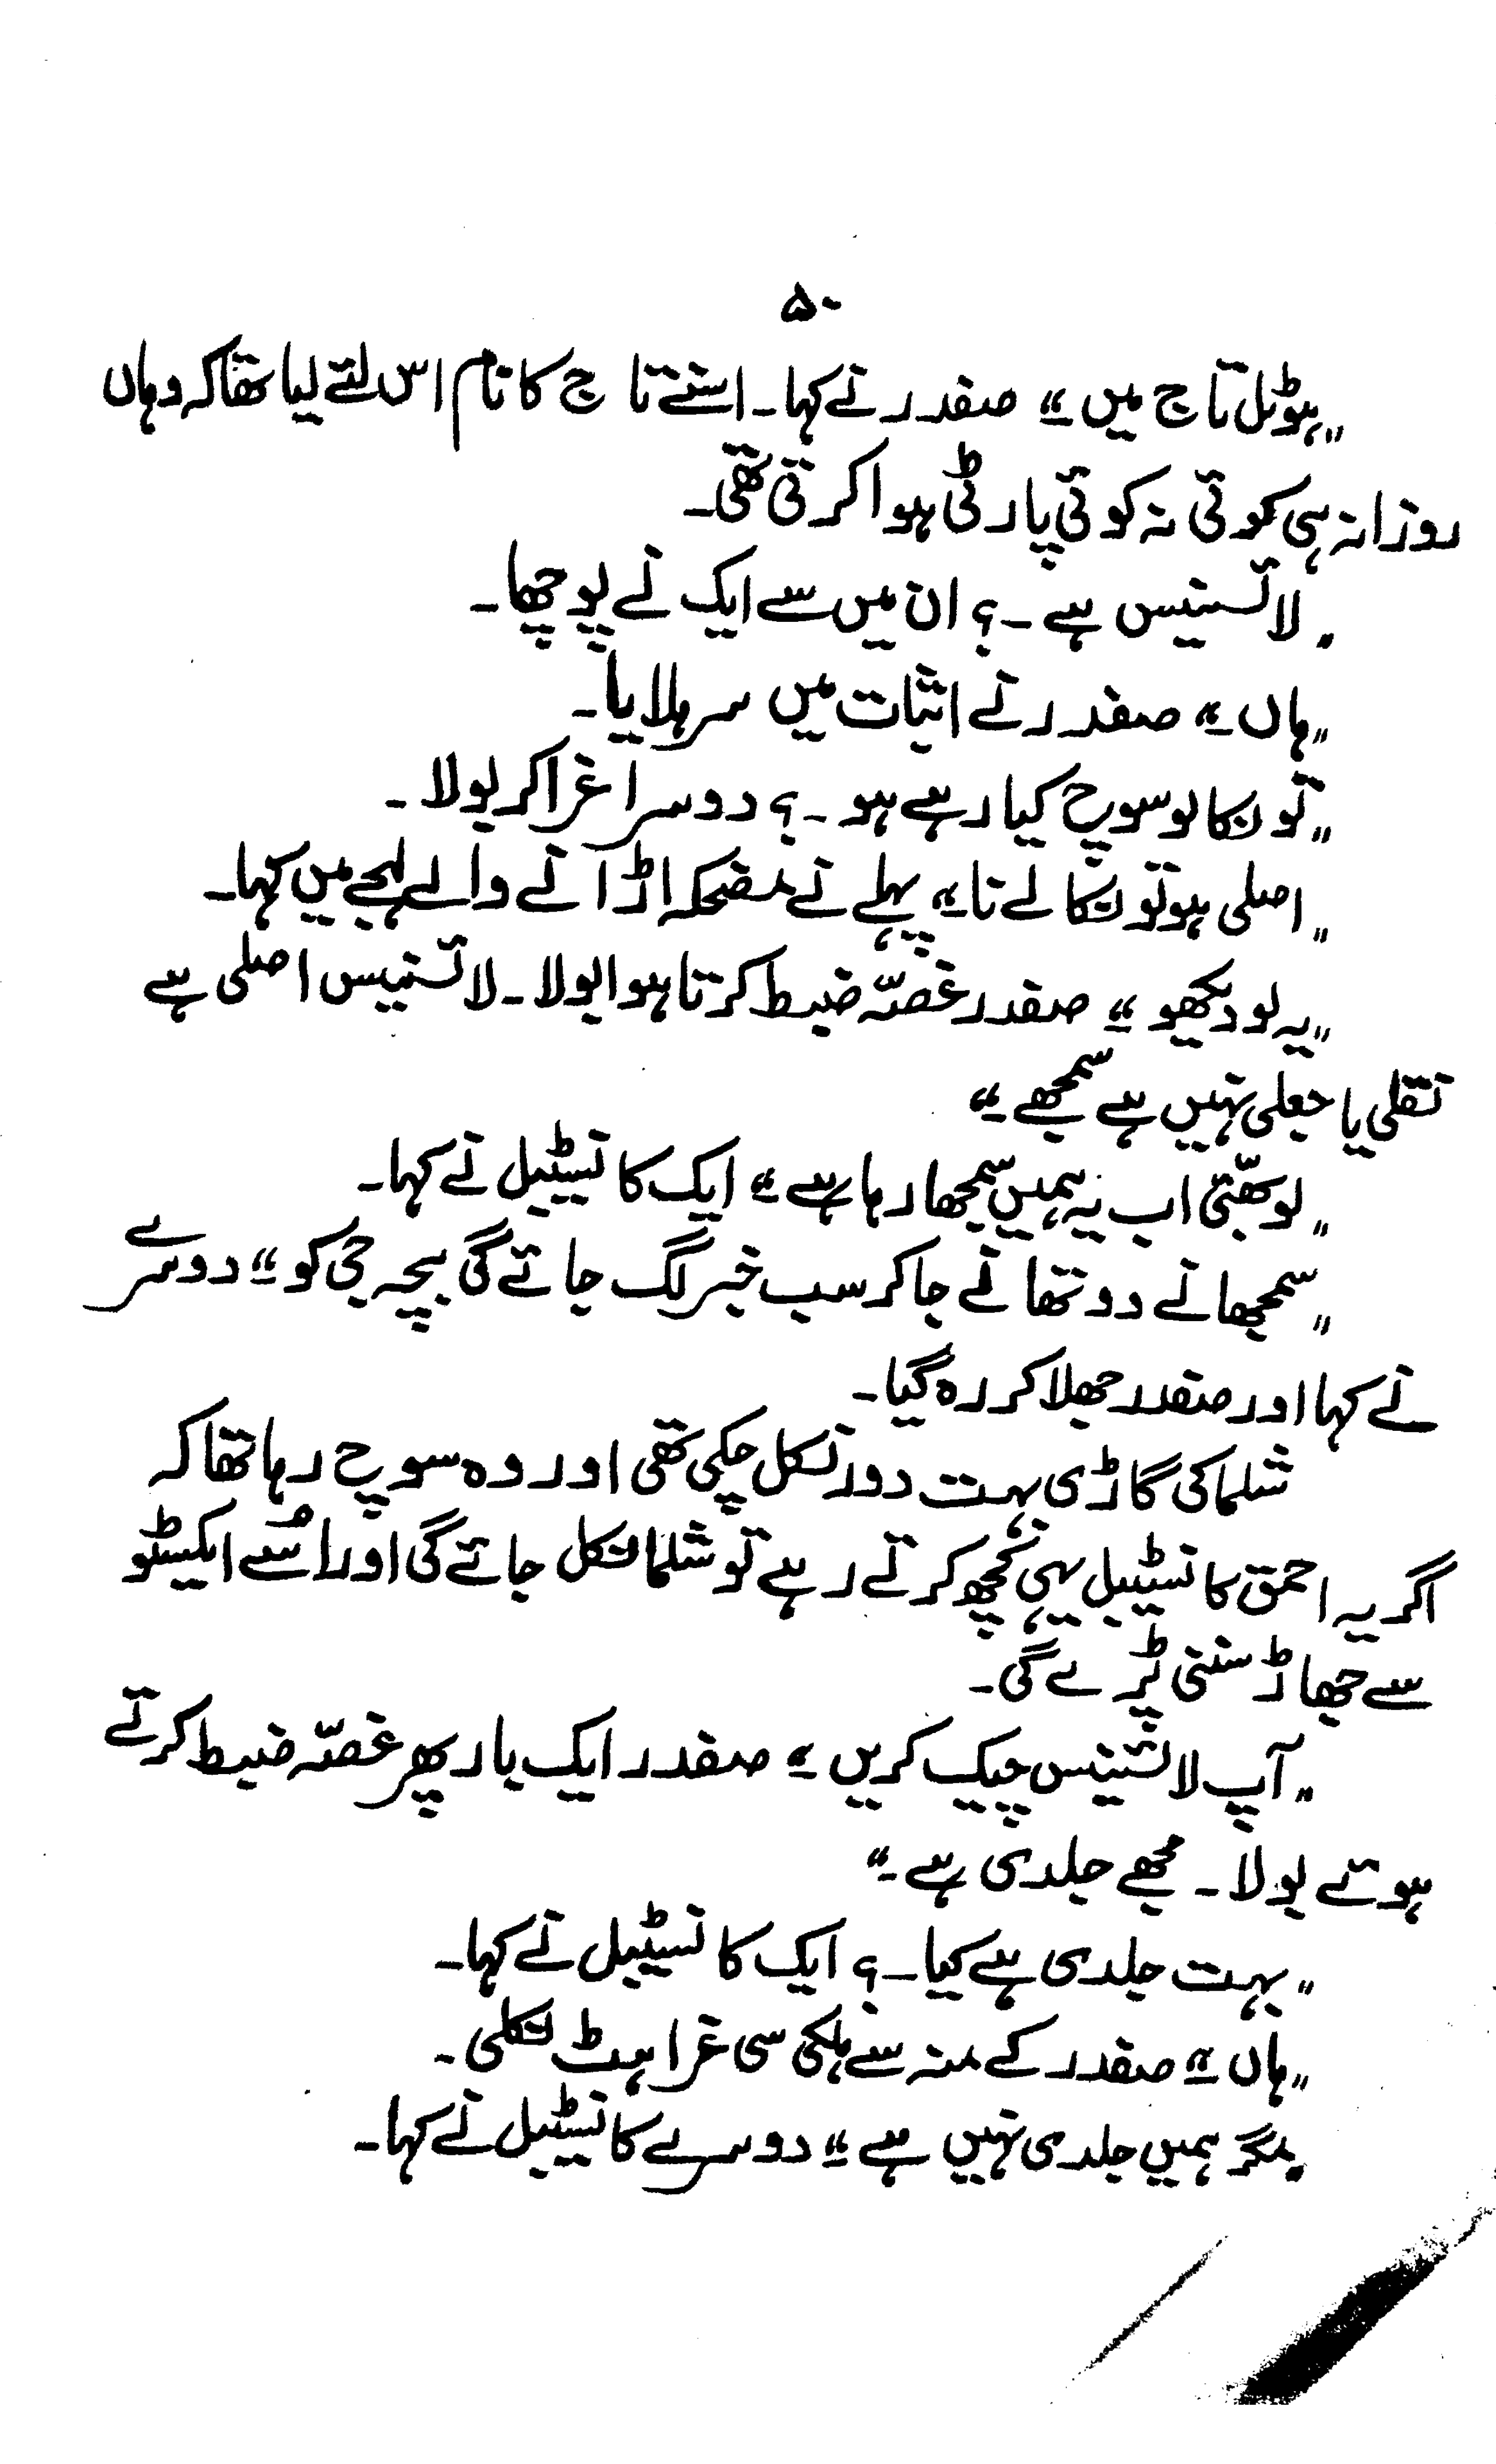 ۵۰
"ہوٹل تاج میں" صفدر نے کہا۔ اسنے تاج کا نام اس لئے لیا تھا کہ وہاں
روزانہ ہی کوئی نہ کوئی پارٹی ہوا کرتی تھی۔
"لائسنیس ہے ۔؟ ان میں سے ایک نے پوچھا۔
"ہاں" صفدر نے اثبات میں سر ہلایا۔
"تو نکالو سوچ کیا رہے ہو ۔؟ دوسرا غرا کر بولا۔
"اصلی ہو تو نکالے نا" پہلے نے مضحکہ اڑانے والے لہجے میں کہا۔
"یہ لو دیکھو" صفدر غصّہ ضبط کرتا ہوا بولا۔ لائسنیس اصلی ہے
نقلی یا جعلی نہیں ہے سمجھے"
"لو بھئی اب یہ ہمیں سمجھا رہا ہے" ایک کانسٹیبل نے کہا۔
"سمجھانے دو تھانے جا کر سب خبر لگ جائے گی بچہ جی کو" دوسرے
نے کہا اور صفدر جھلا کر رہ گیا۔
شلما کی گاڑی بہت دور نکل چکی تھی اور وہ سوچ رہا تھا کہ
اگر یہ احمق کانسٹیبل یہی کچھ کرتے رہے تو شلما نکل جائے گی اور اُسے ایکسٹو
سے جھاڑ سننی پڑے گی۔
"آپ لائسنیس چیک کریں" صفدر ایک بار پھر غصّہ ضبط کرتے
ہوئے بولا۔ مجھے جلدی ہے۔"
"بہت جلدی ہے کیا ۔؟ ایک کانسٹیبل نے کہا۔
"ہاں" صفدر کے منہ سے ہلکی سی غراہٹ نکلی۔
"مگر ہمیں جلدی نہیں ہے" دوسرے کانسٹیبل نے کہا۔